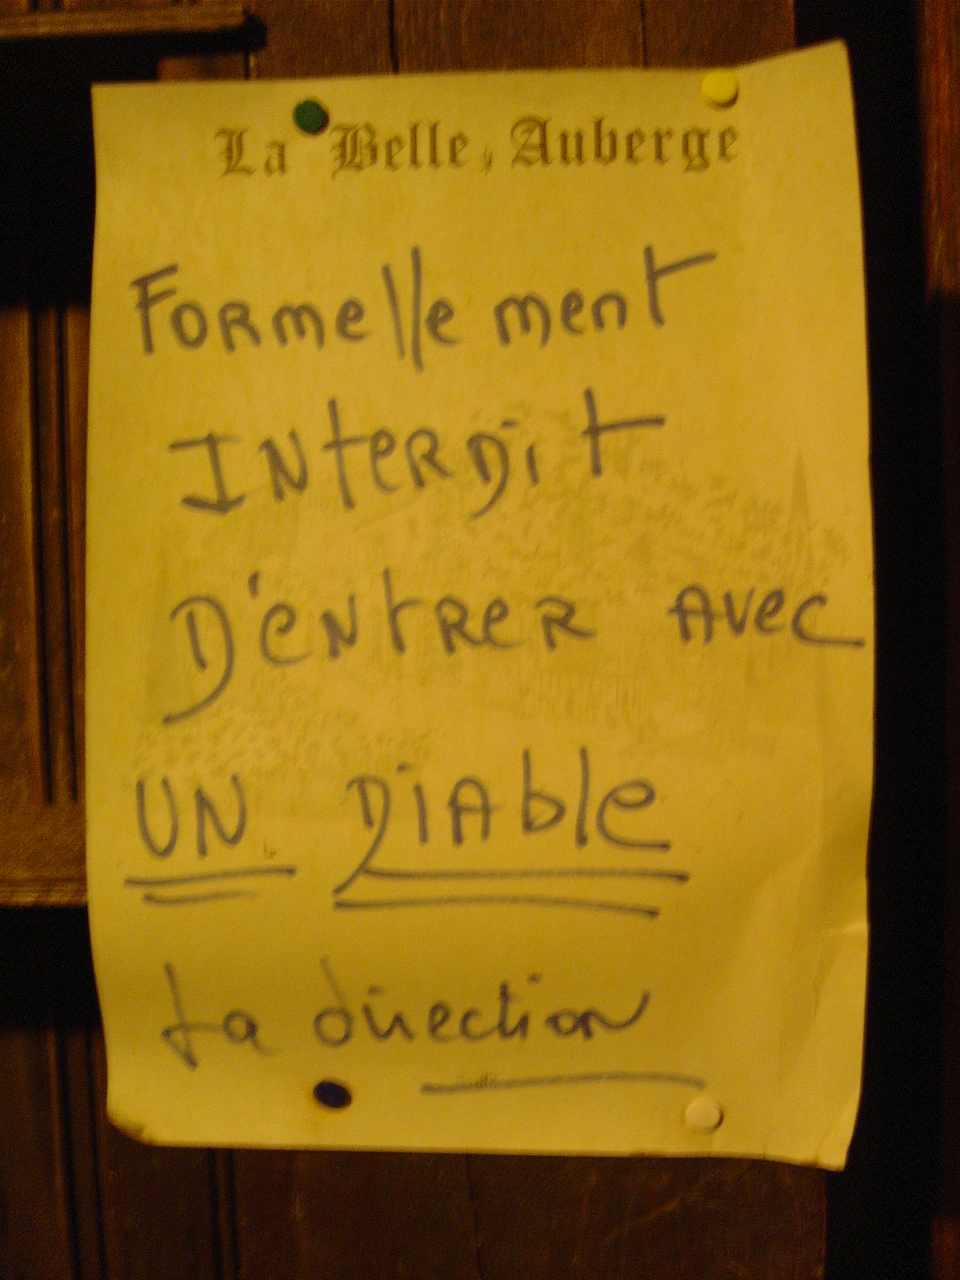 La Belle Auberge
Formellement
Interdit
D'entrer avec
UN Diable
La direction